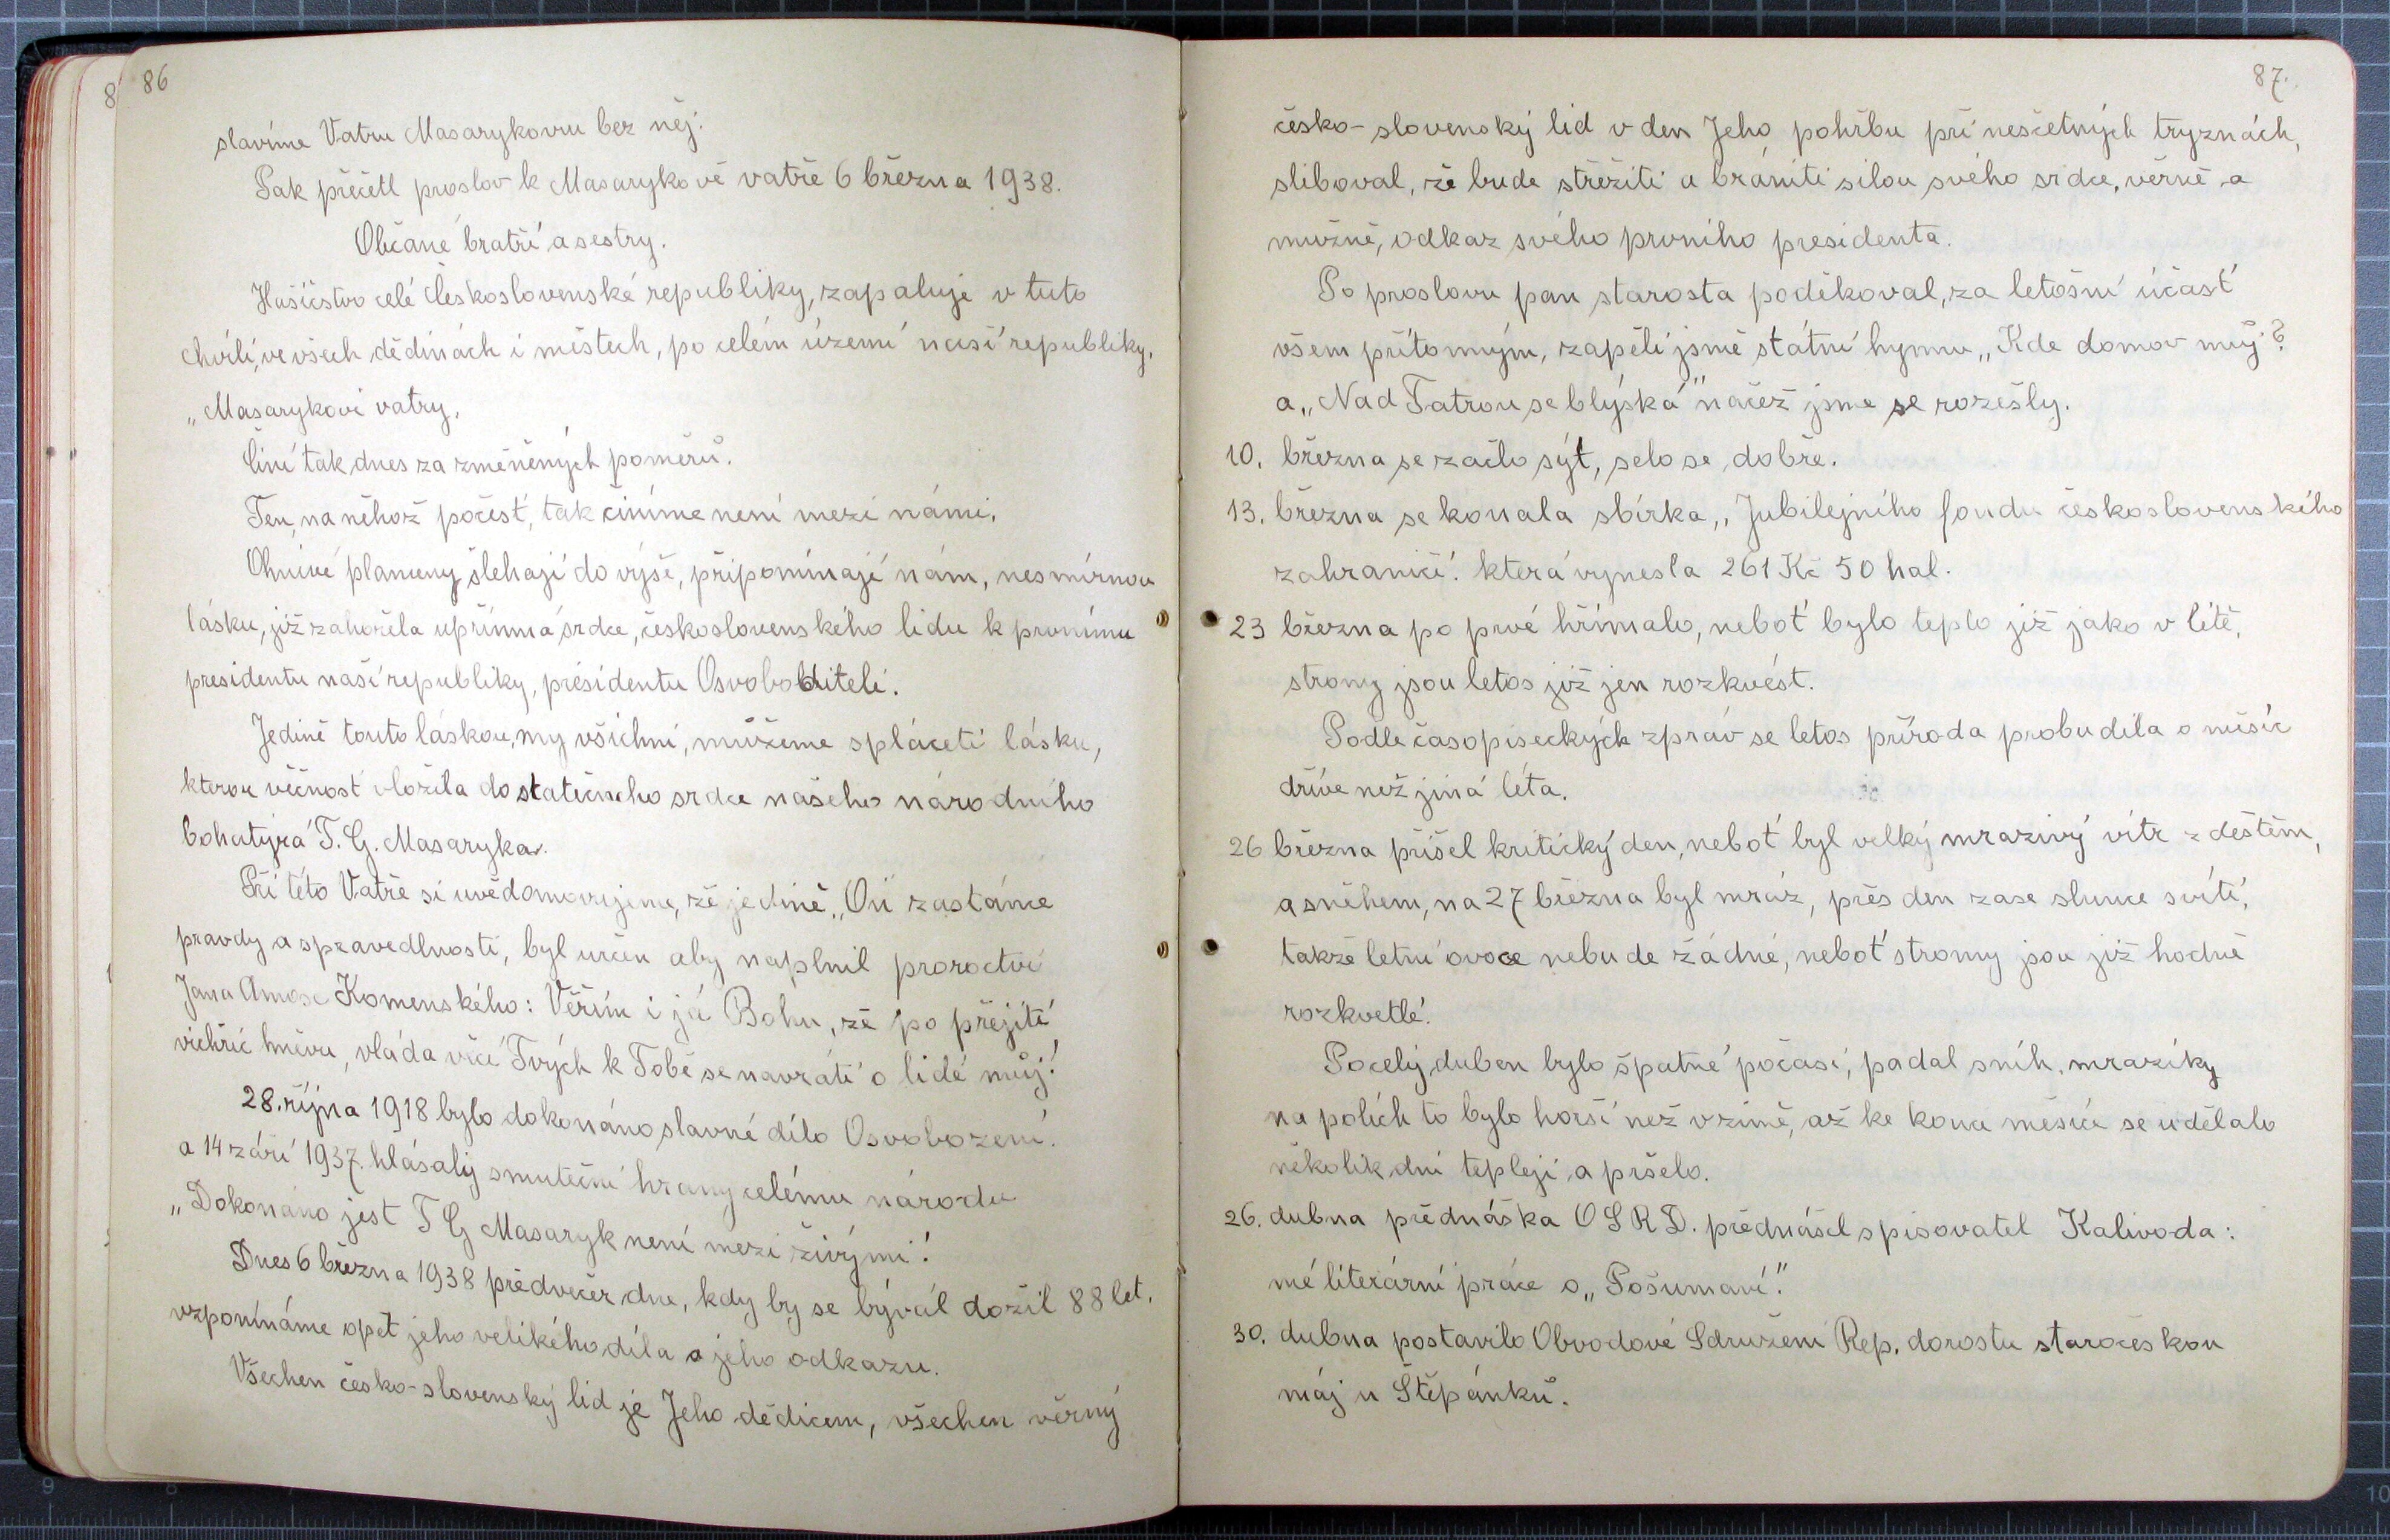 86
slavíme Vatru Masarykovu bez něj.
Pak přečetl proslov k Masarykově vatře 6 března 1938.
Občané bratři a sestry.
Hasičstvo celé Československé republiky, zapaluje v tuto
chvíli, ve všech dědinách i městech, po celém území naší republiky,
„Masarykovi vatry.
Činí tak dnes za změněných poměrů.
Ten, na něhož počest, tak činíme není mezi námi.
Ohnivé plameny šlehají do výše, připomínají nám, nesmírnou
lásku, jíž zahořela upřímná srdce, československého lidu k prvnímu
presidentu naší republiky, presidentu Osvoboditeli.
Jedině touto láskou, my všichni, můžeme spláceti lásku,
kterou věčnost vložila do statečného srdce našeho národního
bohatýra T. G. Masaryka.
Při této Vatře si uvědomovujeme, že jedině „On zastánce
pravdy a spravedlnosti, byl určen aby naplnil proroctví
Jana Amose Komenského: Věřím i já Bohu, že po přejití
vichřic hněvu, vláda věcí Tvých k Tobě se navrátí o lide můj!
28. října 1918 bylo dokonáno slavné dílo Osvobození.
a 14 září 1937. hlásaly smuteční hrany celému národu
„Dokonáno jest T G Masaryk není mezi živými!
Dnes 6 března 1938 předvečer dne, kdy by se býval dožil 88 let,
vzpomínáme opět jeho velikého díla a jeho odkazu.
Všechen česko-slovenský lid je Jeho dědicem, všechen věrný
87.
česko-slovenský lid v den Jeho pohřbu při nesčetných tryznách,
sliboval, že bude střežiti a brániti silou svého srdce, věrně a
mužně, odkaz svého prvního presidenta.
Po proslovu pan starosta poděkoval, za letošní účast
všem přítomným, zapěli jsme státní hymnu „Kde domov můj"?
a „Nad Tatrou se blýská" načež jsme se rozešly.
10. března se začlo sýt, selo se dobře.
13. března se konala sbírka, „Jubilejního fondu československého
zahraničí". která vynesla 261 Kč 50 hal.
23 března po prvé hřímalo, neboť bylo teplo již jako v létě,
stromy jsou letos již jen rozkvést.
Podle časopiseckých zpráv se letos příroda probudila o měsíc
dříve než jiná léta.
26 března přišel kritický den, neboť byl velký mrazivý vítr z deštěm,
a sněhem, na 27 března byl mráz, přes den zase slunce svítí,
takže letní ovoce nebude žádné, neboť stromy jsou již hodně
rozkvetlé.
Po celý duben bylo špatné počasí, padal sníh, mrazíky
na polích to bylo horší než v zimě, až ke konci měsíce se udělalo
několik dní tepleji a pršelo.
26. dubna přednáška O S R D. přednášel spisovatel Kalivoda:
mé literární práce o „Pošumaví."
30. dubna postavilo Obvodové Sdružení Rep. dorostu staročeskou
máj u Štěpánků.